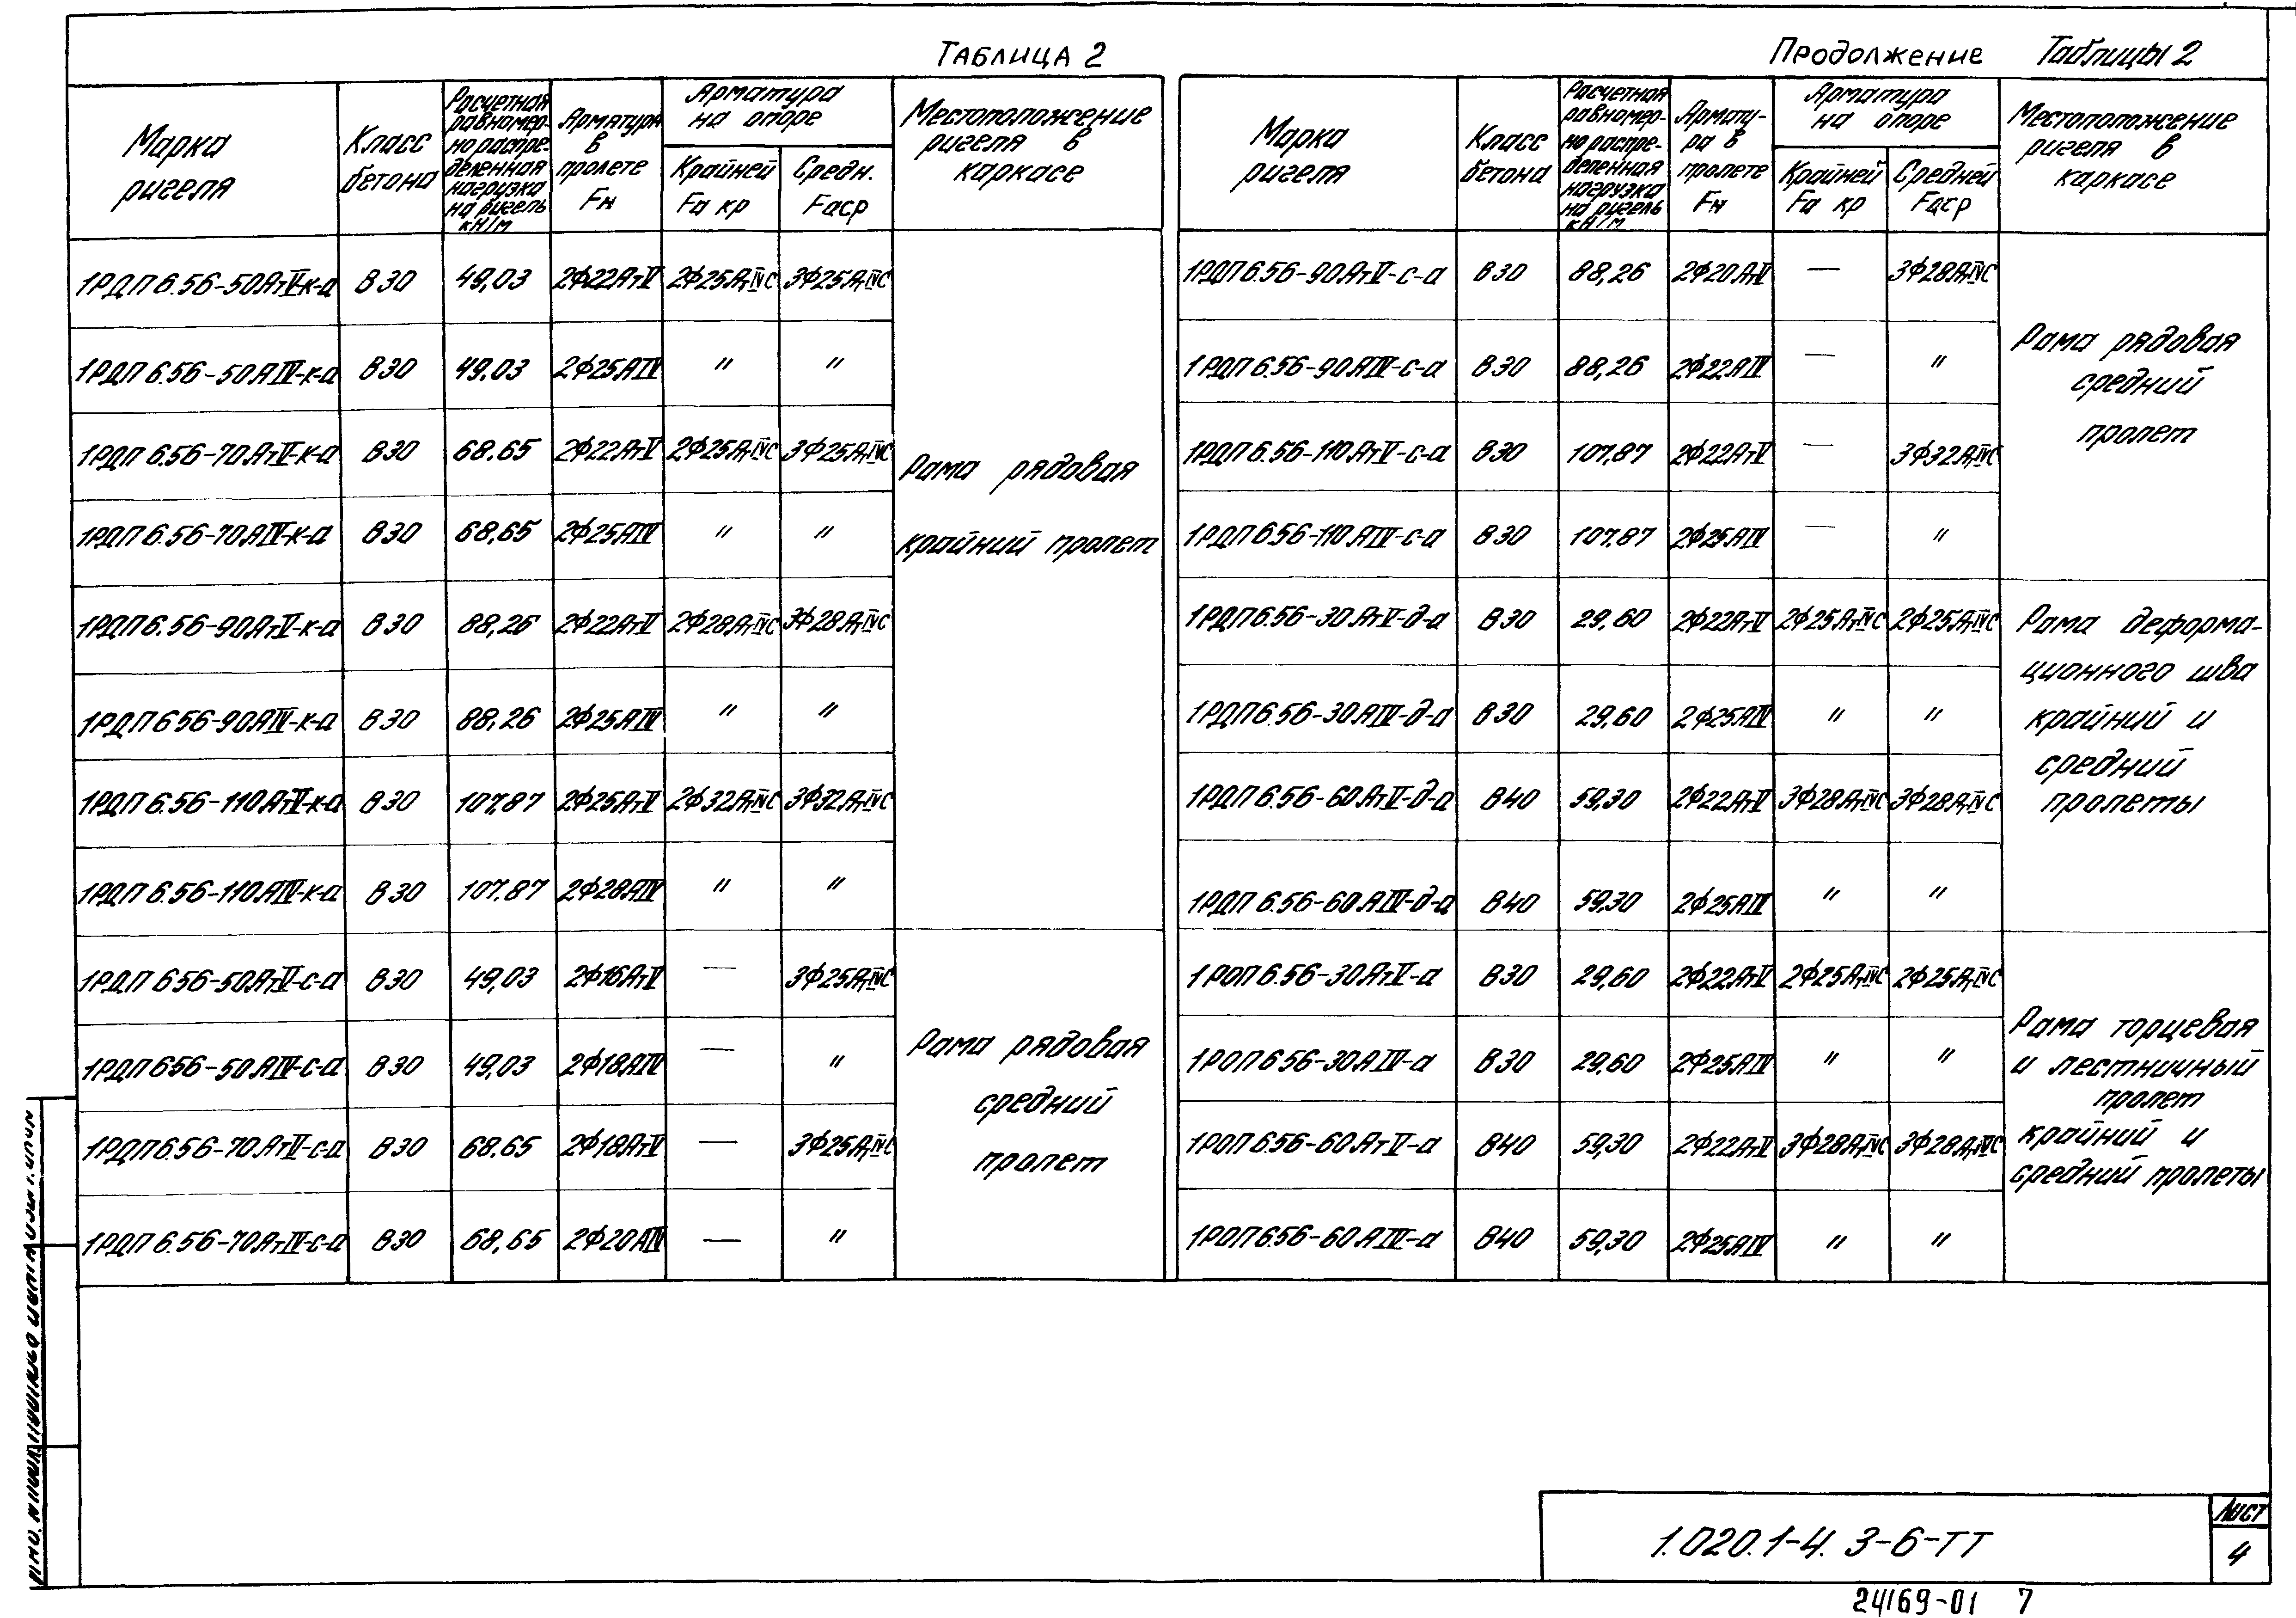 Таблица 2
Марка ригеля
Класс бетона
Расчетная равномерно распределенная нагрузка на ригель кН/м
Арматура в пролете Fн
Арматура на опоре
Крайней Fa кр
Средн. Fаср
Местоположение ригеля в каркасе
1РДП 6.56-50АтV-к-а В30 49,03 2Ф22АтV 2Ф25АтIVС 3Ф25АтIVС
1РДП 6.56-50АIV-к-а В30 49,03 2Ф25АIV " "
1РДП 6.56-70АтV-к-а В30 68.65 2Ф22АтV 2Ф25АтIVС 3Ф25АтIVС
1РДП 6.56-70АIV-к-а В30 68,65 2Ф25АIV " "
1РДП 6.56-90АтV-к-а В30 88,26 2Ф22АтV 2Ф28АтIVС 3Ф28АтIVС
1РДП 6 56-90АIV-к-а В30 88,26 2Ф25АIV " "
1РДП 6.56-110АтV-к-а В30 107,87 2Ф25АтV 2Ф32АтIVС 3Ф32АтIVС
1РДП 6.56-110АIV-к-а В30 107.87 2Ф28АIV " "
Рама рядовая
крайний пролет
1РДП 6 56-50АтV-с-а В30 49,03 2Ф16АтV — 3Ф25АтIVС
1РДП 656-50АIV-с-а В30 49,03 2Ф18АIV — "
1РДП 6.56-70АтV-с-а В30 68.65 2Ф18АтV — 3Ф25АтIVС
1РДП 6.56-70АтIV-с-а В30 68,65 2Ф20АIV — "
Рама рядовая
средний
пролет
Продолжение Таблицы 2
Марка ригеля
Класс бетона
Расчетная равномерно распределенная нагрузка на ригель кН/м
Арматура в пролете Fн
Арматура на опоре
Крайней Fa кр
Средней Fаср
Местоположение ригеля в каркасе
1РДП 6.56-90АтV-с-а В30 88,26 2Ф20АтV — 3Ф28АтIVС
1РДП 6.56-90АIV-с-а В30 88,26 2Ф22АIV — "
1РДП 6.56-110АтV-с-а В30 107,87 2Ф22АтV — 3Ф32АтIVС
1РДП 6.56-110АIV-с-а В30 107.87 2Ф25АIV — "
Рама рядовая
средний
пролет
1РДП 6.56-30АтV-д-а В30 29,60 2Ф22АтV 2Ф25АтIVС 2Ф25АтIVС
1РДП 6.56-30АIV-д-а В30 29,60 2Ф25АIV " "
1РДП 6.56-60АтV-д-а В40 59,30 2Ф22АтV 3Ф28АтIVС 3Ф28АтIVС
1РДП 6.56-60АIV-д-а В40 59,30 2Ф25АIV " "
Рама деформа-
ционного шва
крайний и
средний
пролеты
1РОП 6.56-30АтV-а В30 29,60 2Ф22АтV 2Ф25АтIVС 2Ф25АтIVС
1РОП 6 56-30АIV-а В30 29,60 2Ф25АIV " "
1РОП 6.56-60АтV-а В40 59,30 2Ф22АтV 3Ф28АтIVС 3Ф28АтIVС
1РОП 6.56-60АIV-а В40 59,30 2Ф25АIV " "
Рама торцевая
и лестничный
пролет
крайний и
средний пролеты
1.020.1-4. 3-6-ТТ
Лист
4
24169-01 7